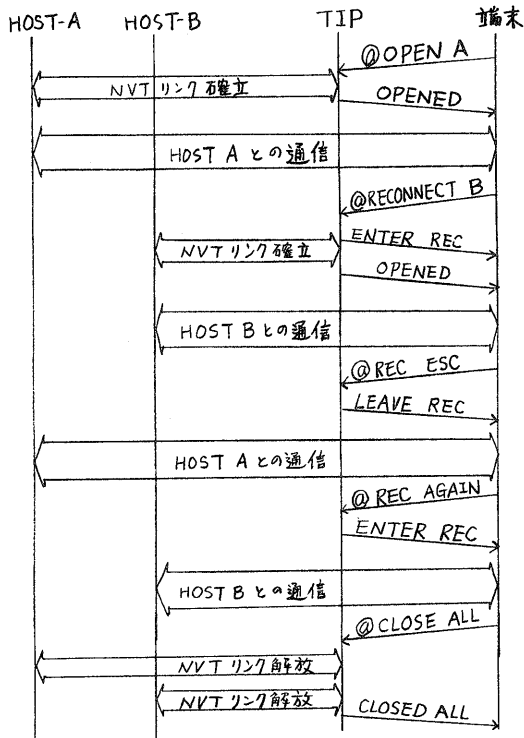 HOST-A HOST-B TIP 端末
@OPEN A
NVTリンク確立
OPENED
HOST A との通信
@RECONNECT B
ENTER REC
NVTリンク確立
OPENED
HOST B との通信
@REC ESC
LEAVE REC
HOST A との通信
@REC AGAIN
ENTER REC
HOST B との通信
@CLOSE ALL
NVTリンク解放
NVTリンク解放
CLOSED ALL